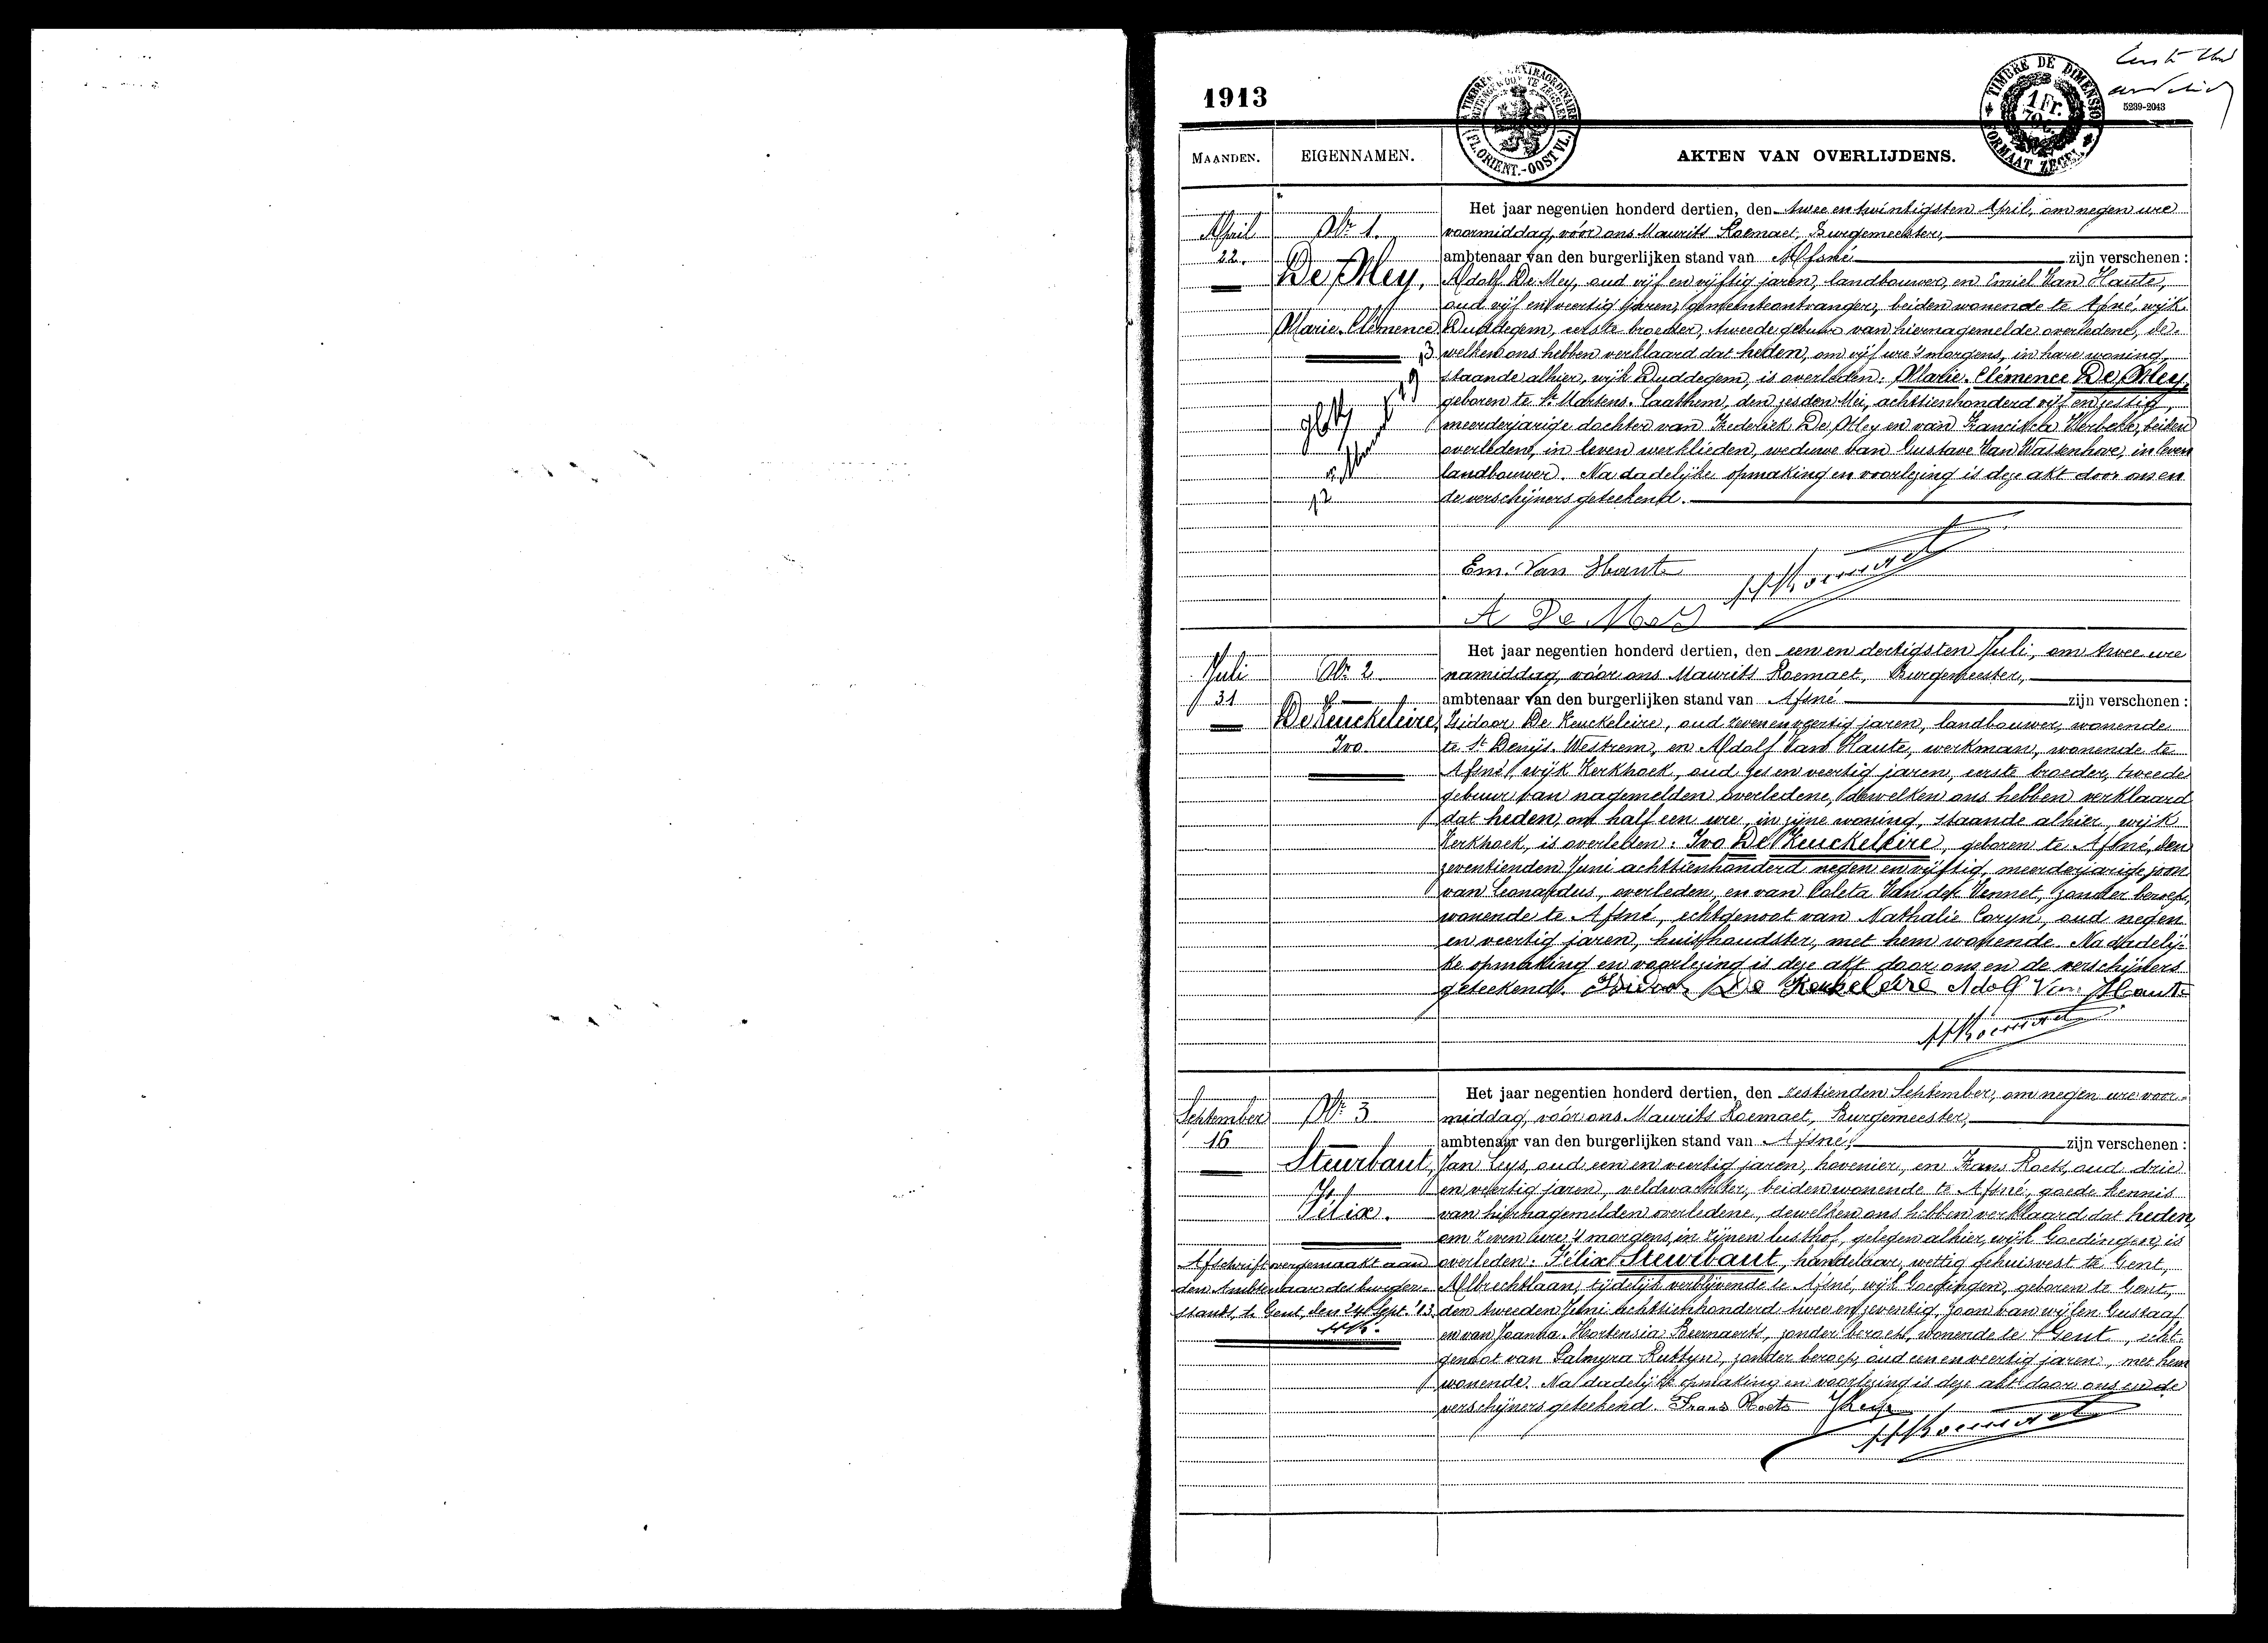 1913
TIMBRE EXTRAORDINAIRE
BUITENGEWOON TE ZEGELEN
(FL. ORIENT.-OOST VL.)
TIMBRE DE DIMENSION
1 Fr.
FORMAAT ZEGEL
5239-2043
MAANDEN.
EIGENNAMEN.
AKTEN VAN OVERLIJDENS.
April
22.
Nr 1.
De Mey,
Marie-Clémence
Het jaar negentien honderd dertien, den twee en twintigsten April, om negen ure
voormiddag, vóór ons Maurits Roemaet, Burgemeester,
ambtenaar van den burgerlijken stand van Afsné zijn verschenen :
Adolf De Mey, oud vijf en vijftig jaren, landbouwer, en Emiel Van Haute,
oud vijf en veertig jaren, gemeenteontvanger, beiden wonende te Afsné, wijk
Duddegem, eerste broeder, tweede gebuur van hiernagemelde overledene, de-
welken ons hebben verklaard dat heden, om vijf ure 's morgens, in hare woning,
staande alhier, wijk Duddegem, is overleden: Marie-Clémence De Mey,
geboren te St Martens-Laathem, den zesden Mei, achttienhonderd vijf en zestig,
meerderjarige dochter van Frederik De Mey en van Francisca Verbeke, beiden
overleden, in leven werklieden, weduwe van Gustave Van Wassenhove, in leven
landbouwer. Na dadelijke opmaking en voorlezing is deze akt door ons en
de verschijners geteekend.
Em. Van Haute
A De Mey
Juli
31
Nr 2
De Keuckeleire,
Ivo
Het jaar negentien honderd dertien, den een en dertigsten Juli, om twee ure
namiddag, vóór ons Maurits Roemaet, Burgemeester,
ambtenaar van den burgerlijken stand van Afsné zijn verschenen :
Isidoor De Keuckeleire, oud zeven en veertig jaren, landbouwer, wonende
te St Denijs-Westrem, en Adolf Van Haute, werkman, wonende te
Afsné, wijk Kerkhoek, oud zes en veertig jaren, eerste broeder, tweede
gebuur van nagemelden overledene, dewelken ons hebben verklaard
dat heden, om half een ure, in zijne woning, staande alhier, wijk
Kerkhoek, is overleden: Ivo De Keuckeleire, geboren te Afsné, den
zeventienden Juni achttienhonderd negen en vijftig, meerderjarige zoon
van Leonardus, overleden, en van Coleta Van der Vennet, zonder beroep,
wonende te Afsné, echtgenoot van Nathalie Coryn, oud negen
en veertig jaren, huishoudster, met hem wonende. Na dadelij-
ke opmaking en voorlezing is deze akt door ons en de verschijners
geteekend. Isidoor De Keukeleire Adolf Van Haute
September
16
Nr 3
Steurbaut,
Félix.
Afschrift overgemaakt aan
den Ambtenaar des burger-
stands te Gent, den 24 Sept. '13
Het jaar negentien honderd dertien, den zestienden September, om negen ure voor-
middag, vóór ons Maurits Roemaet, Burgemeester,
ambtenaar van den burgerlijken stand van Afsné, zijn verschenen :
Jan Leys, oud een en veertig jaren, hovenier, en Frans Roets, oud drie
en veertig jaren, veldwachter, beiden wonende te Afsné, goede kennis
van hiernagemelden overledene, dewelken ons hebben verklaard dat heden,
om zeven ure 's morgens, in zijnen lusthof, gelegen alhier, wijk Goedingen, is
overleden: Félix Steurbaut, handelaar, wettig gehuisvest te Gent,
Albrechtlaan, tijdelijk verblijvende te Afsné, wijk Goedingen, geboren te Gent,
den tweeden Juni achttienhonderd twee en zeventig, zoon van wijlen Gustaaf
en van Joanna-Hortensia Beernaerts, zonder beroep, wonende te Gent, echt-
genoot van Palmyra Ruttyn, zonder beroep, oud een en veertig jaren, met hem
wonende. Na dadelijke opmaking en voorlezing is deze akt door ons en de
verschijners geteekend. Frans Roets J Leys